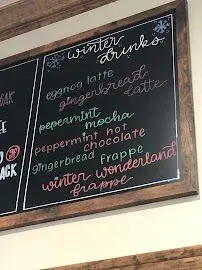 winter
drinks
eggnog latte
gingerbread
latte
pepermint
mocha
peppermint hot
chocolate
gingerbread Frappe
winter wonderland
frappe
OAK
ACK